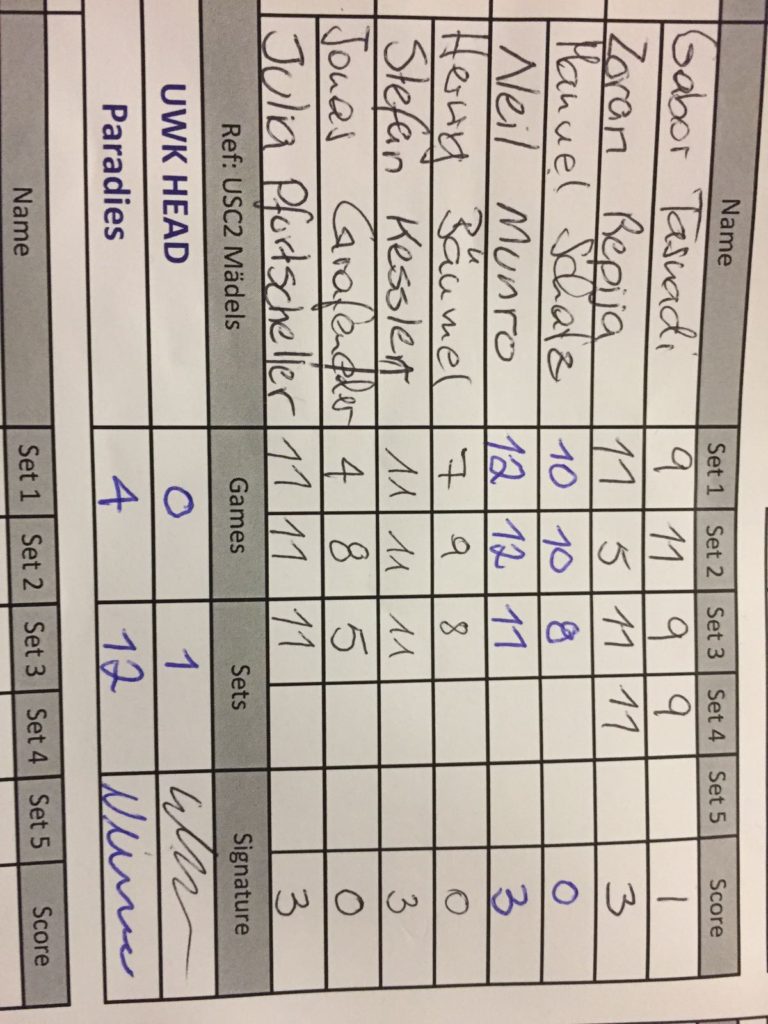 Name Set 1 Set 2 Set 3 Set 4 Set 5 Score
Gabor Tasnadi 9 11 9 9 1
Zoran Repija 11 5 11 11 3
Manuel Schatz 10 10 8 0
Neil Munro 12 12 11 3
Herwig Bäumel 7 9 8 0
Stefan Kessler 11 11 11 3
Jonas 4 8 5 0
Julia Pfurtscheller 11 11 11 3
Ref: USC2 Mädels Games Sets Signature
UWK HEAD 0 1
Paradies 4 12
Name Set 1 Set 2 Set 3 Set 4 Set 5 Score